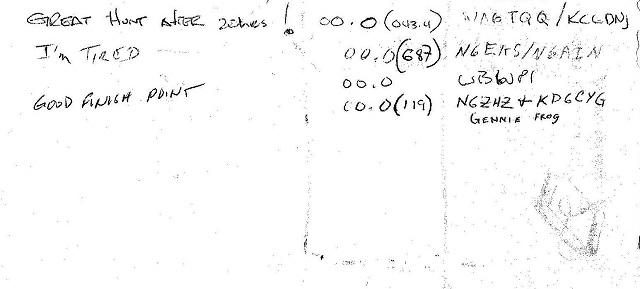 GREAT HUNT AFTER 2 EWES! 00.0 (043.4)
I'm TIRED 00.0 (687) N6EKS/N6AIN
00.0 WB6WPI
GOOD FINISH POINT 00.0 (119) N6ZHZ + KD6CYG
GENNIE FROG